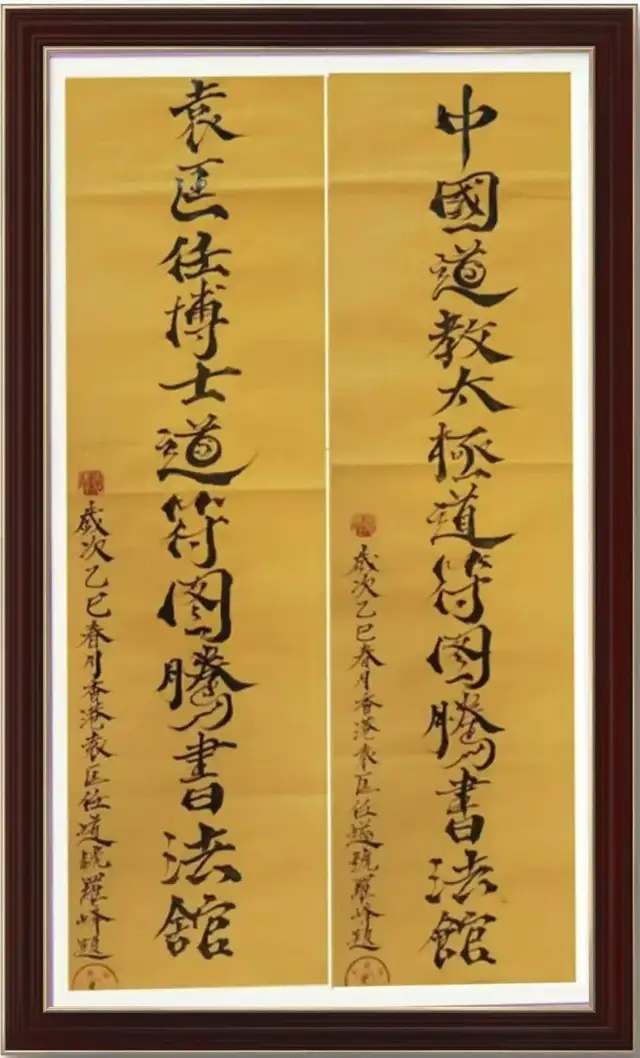 中國道教太極道符图騰書法館
歲次乙巳春月香港袁匡任道號羅峰題
袁匡任博士道符图騰書法舘
歲次乙巳春月香港袁匡任道號羅峰題